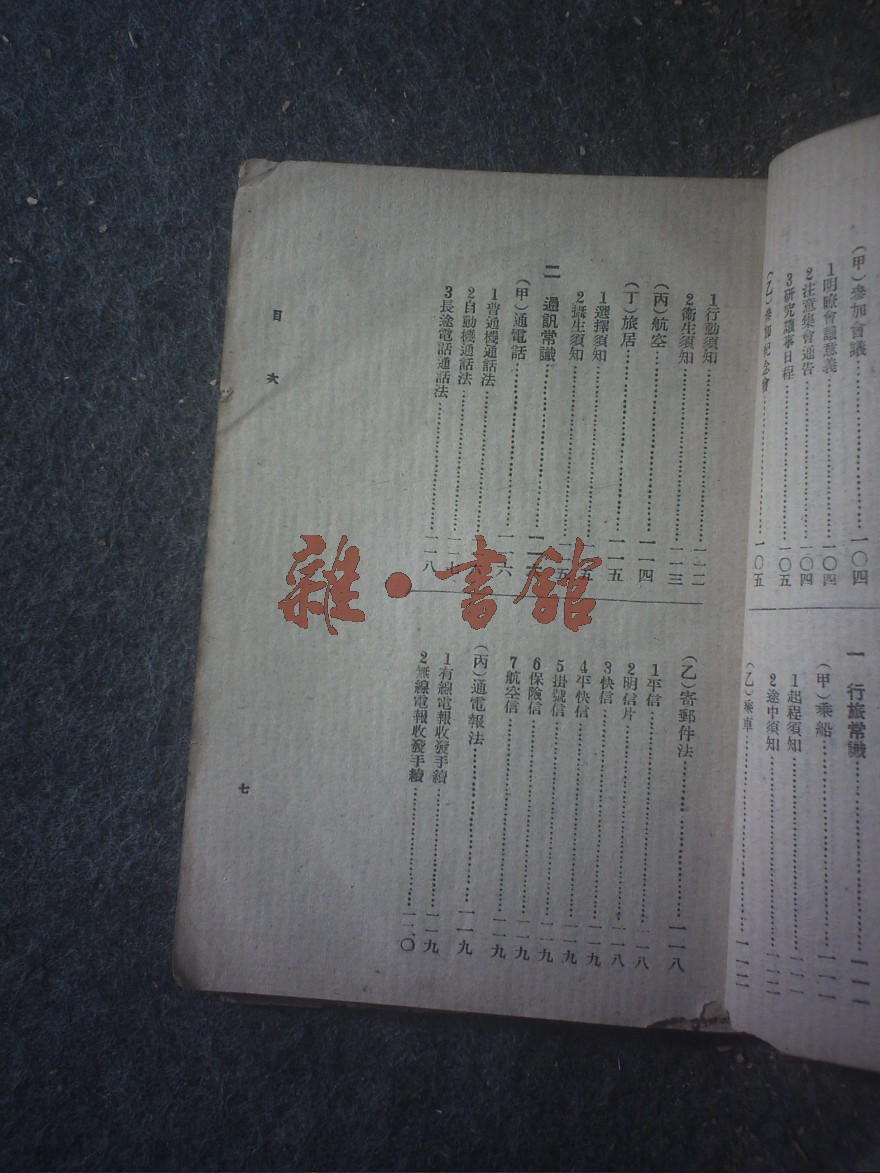 (甲)參加會議……一〇四
1明瞭會議意義……一〇四
2注意集會通告……一〇四
3研究議事日程……一〇五
(乙)參加紀念會……一〇五
一 行旅常識……一一一
(甲)乘船……一一一
1起程須知……一一一
2途中須知……一一二
(乙)乘車……一一二
1行動須知……一一二
2衛生須知……一一三
(丙)航空……一一四
(丁)旅居……一一五
1選擇須知……一一五
2攝生須知……一一五
二 通訊常識……一一六
(甲)通電話……一一六
1普通機通話法……一一六
2自動機通話法……一一七
3長途電話通話法……一一八
(乙)寄郵件法……一一八
1平信……一一八
2明信片……一一八
3快信……一一九
4平快信……一一九
5掛號信……一一九
6保險信……一一九
7航空信……一一九
(丙)通電報法……一一九
1有線電報收發手續……一一九
2無線電報收發手續……一二〇
目 次
七
雜·書館